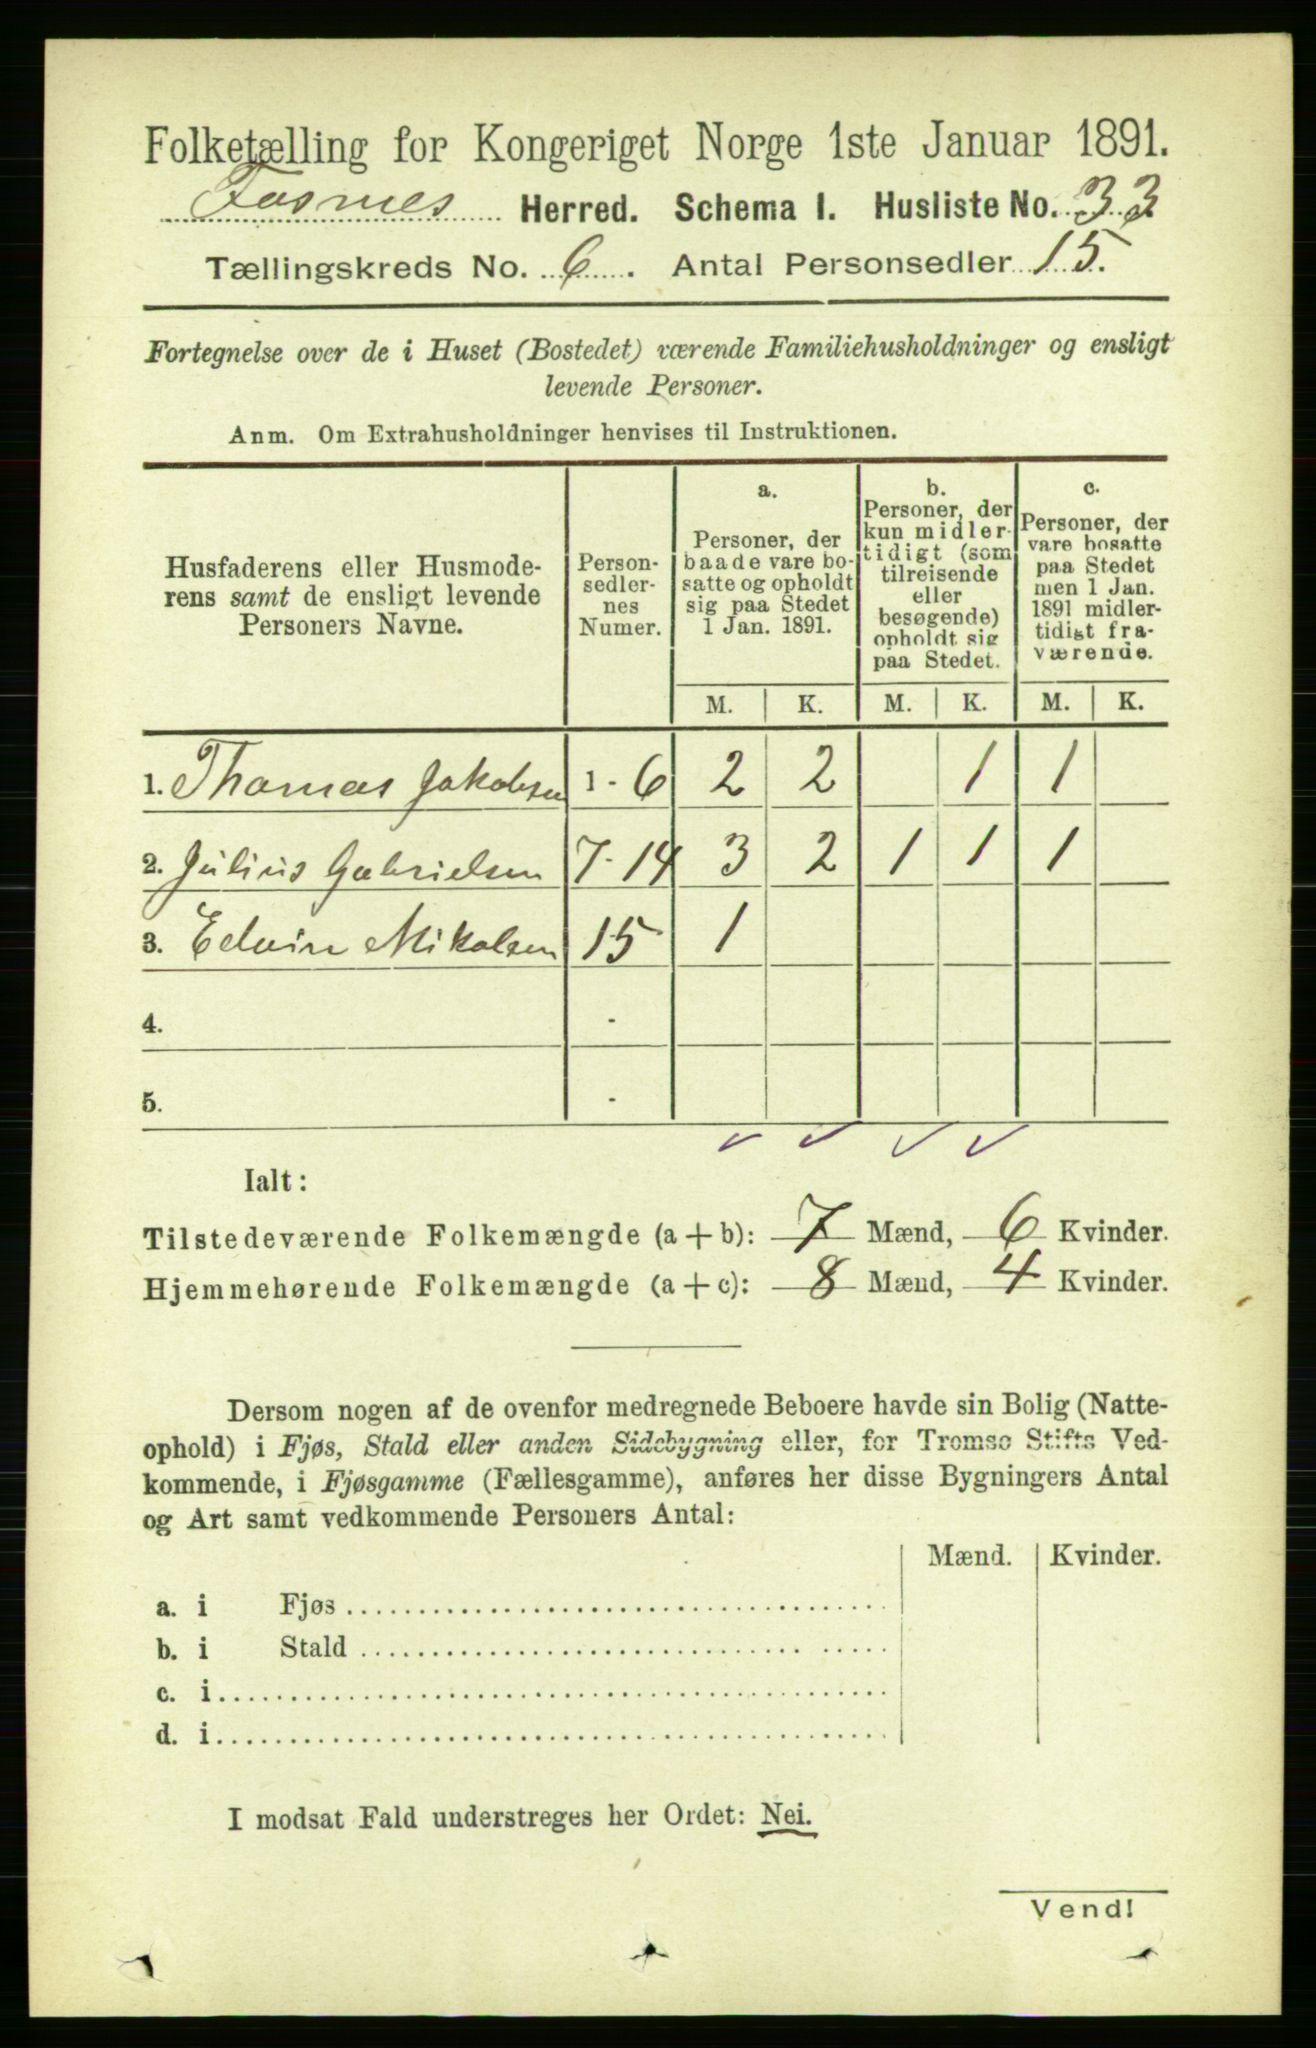 Folketælling for Kongeriget Norge 1ste Januar 1891.
Fosnes Herred. Schema I. Husliste No. 33
Tællingskreds No. 6. Antal Personsedler 15.
Fortegnelse over de i Huset (Bostedet) værende Familiehusholdninger og ensligt
levende Personer.
Anm. Om Extrahusholdninger henvises til Instruktionen.
Husfaderens eller Husmode-
rens samt de ensligt levende
Personers Navne.
Person-
sedler-
nes
Numer.
a.
Personer, der
baade vare bo-
satte og opholdt
sig paa Stedet
1 Jan. 1891.
b.
Personer, der
kun midler-
tidigt (som
tilreisende
eller
besøgende)
opholdt sig
paa Stedet.
c.
Personer, der
vare bosatte
paa Stedet
men 1 Jan.
1891 midler-
tidigt fra-
værende.
M. K. M. K. M. K.
1. Thomas Jakobsen 1 - 6 2 2 1 1
2. Julius Gabrielsen 7 - 14 3 2 1 1 1
3. Edvin Mikalsen 15 1
4. -
5. -
Ialt:
Tilstedeværende Folkemængde (a + b): 7 Mænd, 6 Kvinder.
Hjemmehørende Folkemængde (a + c): 8 Mænd, 4 Kvinder.
Dersom nogen af de ovenfor medregnede Beboere havde sin Bolig (Natte-
ophold) i Fjøs, Stald eller anden Sidebygning eller, for Tromsø Stifts Ved-
kommende, i Fjøsgamme (Fællesgamme), anføres her disse Bygningers Antal
og Art samt vedkommende Personers Antal:
Mænd. Kvinder.
a. i Fjøs
b. i Stald
c. i
d. i
I modsat Fald understreges her Ordet: Nei.
Vend!